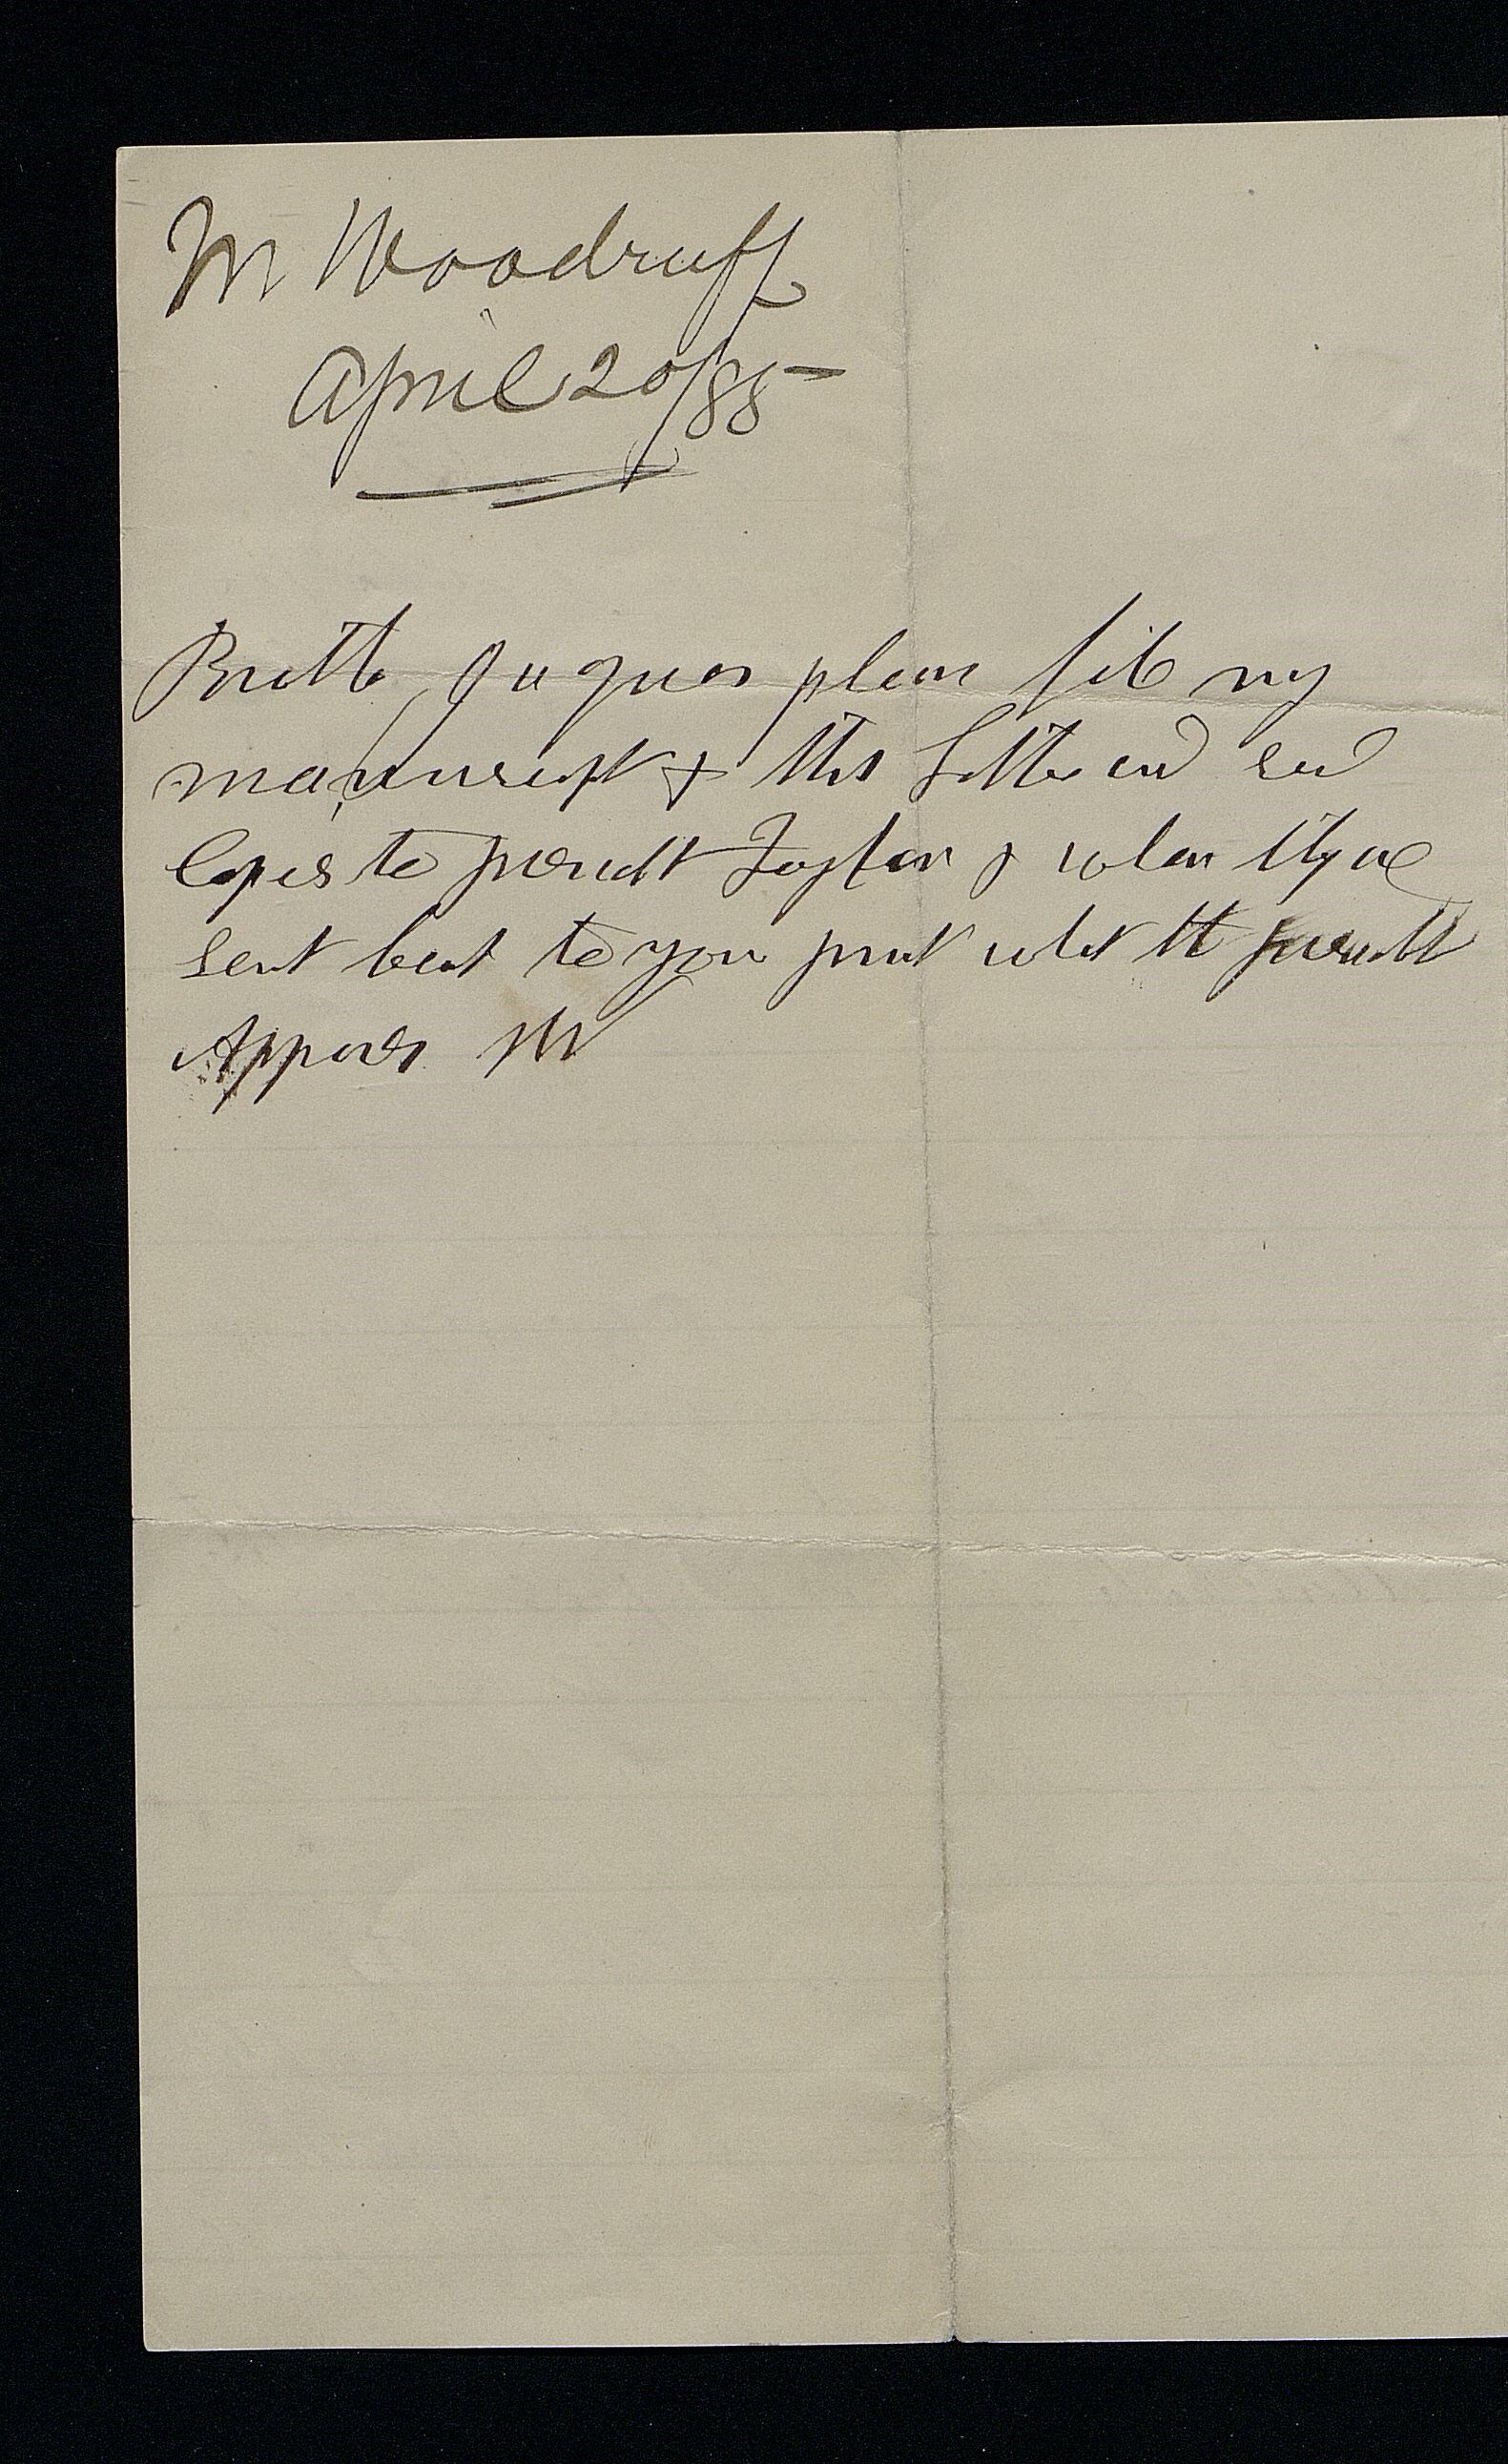 W Woodruff
April 20/85
Brother Jaques please file my
manuscript & this Letter and send
Copies to presidt Taylor & when they are
sent back to you print what the presidt
Approves WW